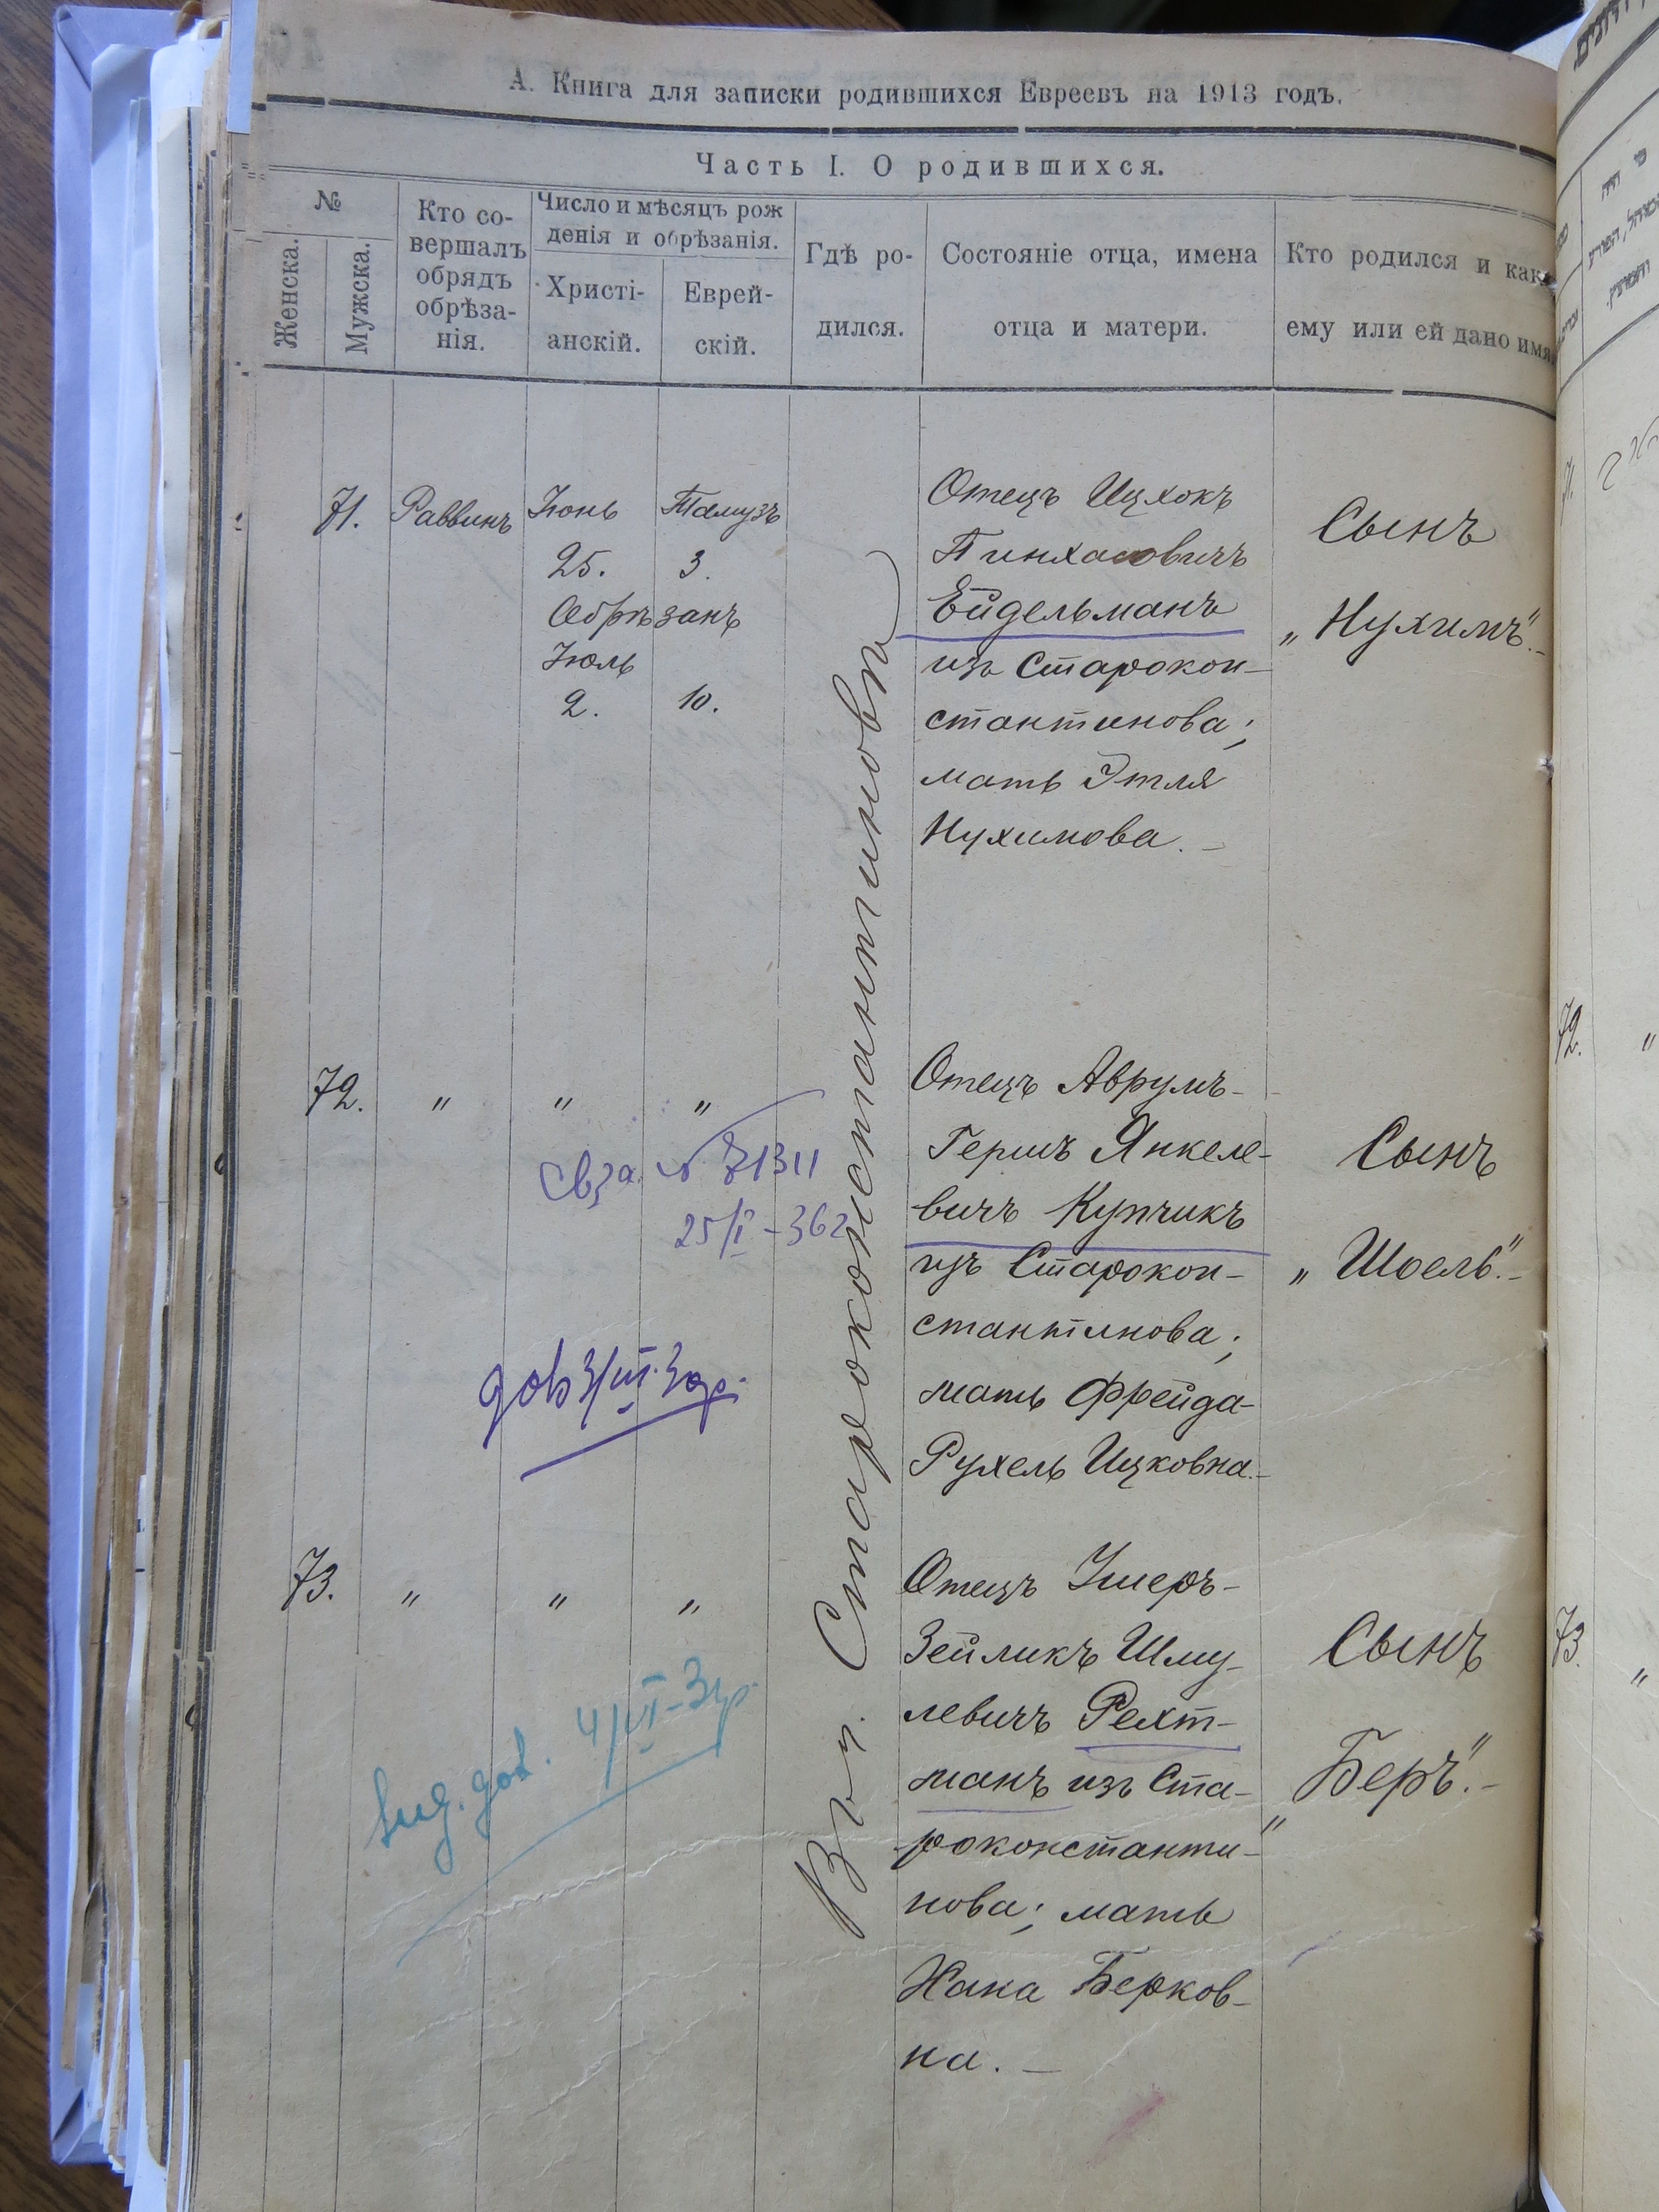 А. Книга для записки родившихся Евреевъ на 1913 годъ.
Часть I. О родившихся.
№
Женска.
Мужска.
Кто со-
вершалъ
обрядъ
обрѣза-
нія.
Число и мѣсяцъ рож
денія и обрѣзанія.
Христі-
анскій.
Еврей-
скій.
Гдѣ ро-
дился.
Состояніе отца, имена
отца и матери.
Кто родился и как
ему или ей дано имя.
71.
Раввинъ
Іюнь
25.
Тамузъ
3.
Обрѣзанъ
Іюль
2.
10.
Въ г. Староконстантиновѣ
Отецъ Ицхокъ
Пинхасовичъ
Ейдельманъ
изъ Старокон-
стантинова;
мать Этля
Нухимова. –
Сынъ
„Нухимъ“. –
72.
„ „ „
25/I – 362
Отецъ Аврумъ-
Гершъ Янкеле-
вичъ Купчикъ
изъ Старокон-
стантинова;
мать Фрейда-
Рухель Ицковна. –
Сынъ
„Шоель“. –
73.
„ „ „
Отецъ Ушеръ-
Зейликъ Шму-
левичъ Рехт-
манъ изъ Ста-
роконстанти-
нова; мать
Хана Берков-
на. –
Сынъ
„Беръ“. –
72.
„
73.
„